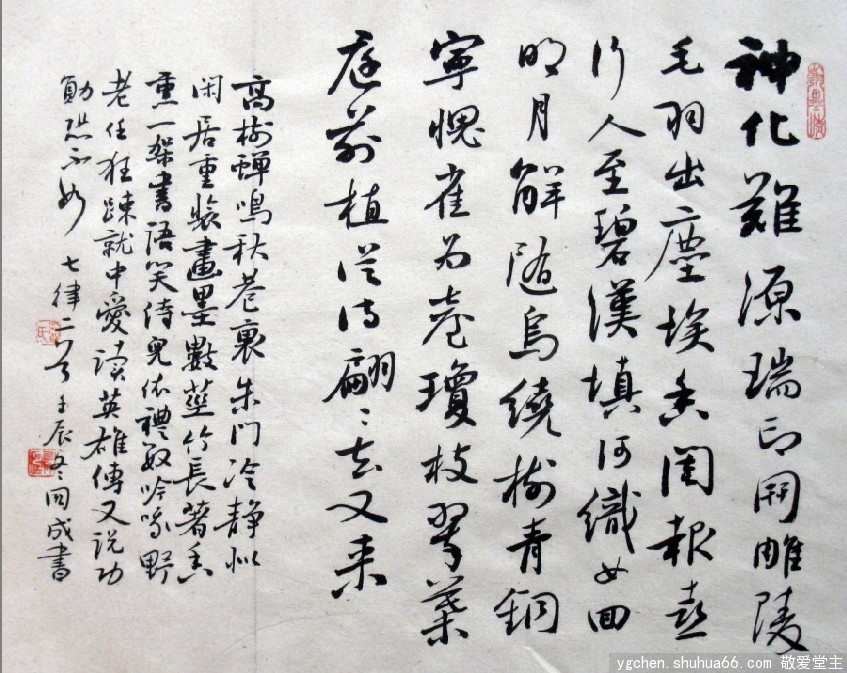 神化難源瑞即開雕陵
毛羽出塵埃香閨報喜
行人至碧漢填河織女回
明月解隨烏繞樹青銅
寧愧雀為臺瓊枝翠葉
庭前植從待翩〻去又来
高樹蟬鳴秋巷裏朱門冷靜似
閑居重裝畫墨數莖竹長著香
熏一架書語笑侍兒依禮數吟哦野
老任狂踈就中愛讀英雄傳又説功
勛恐不如 七律二首 壬辰冬 成書
ygchen.shuhua66.com 敬爱堂主